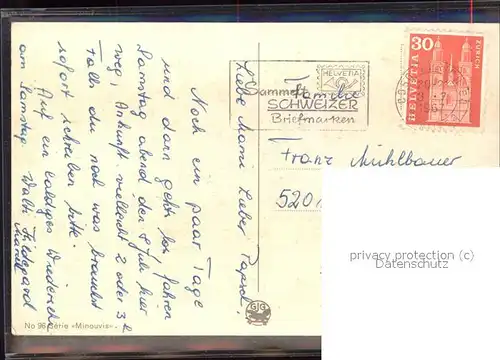 Liebe Mami Lieber Papsch.
Noch ein paar Tage
und dann geht's los fahren
Samstag abend den 8 Juli hier
weg, Ankunft vielleicht 2 oder 3 h
Falls du noch was brauchst
sofort schreiben bitte.
Auf ein baldiges Wiedersehn
am Samstag. Walti Hildegard
Familie
Franz Mühlbauer
520
Sammelt
SCHWEIZER
Briefmarken
HELVETIA
30
HELVETIA
ZÜRICH
No 96 Série »Minouvis«
privacy protection (c)
Datenschutz